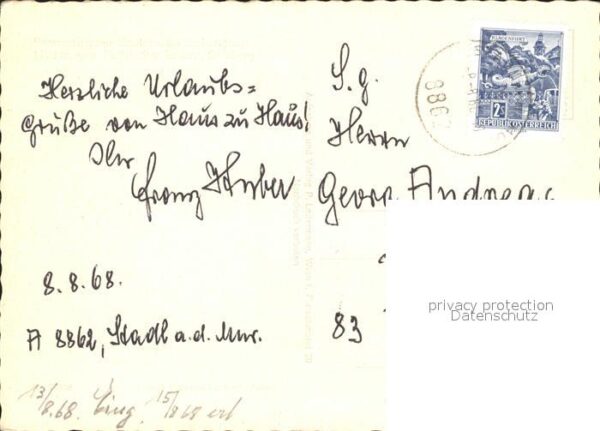 Herzliche Urlaubs=
grüße von Haus zu Haus!
Ihr
Franz Huber
8.8.68.
A 8862, Stadl a.d. Mur.
13/8.68. Eing. 15/8 68 erl
S.g.
Herrn
Georg Andreas
83
KLAGENFURT
2S
REPUBLIK ÖSTERREICH
886
privacy protection
Datenschutz